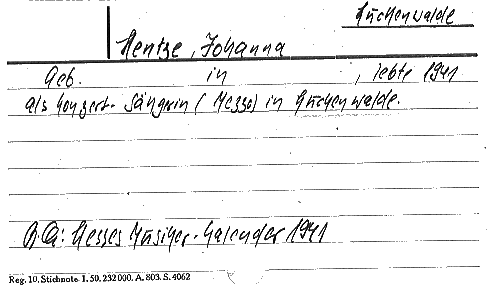 Luckenwalde
Hentze, Johanna
Geb. in , lebte 1941
als Konzert-Sängerin (Messo) in Luckenwalde.
B.Q: Hesses Musiker-Kalender 1941
Reg. 10. Stichnote 1. 50. 232000. A. 803. S. 4062